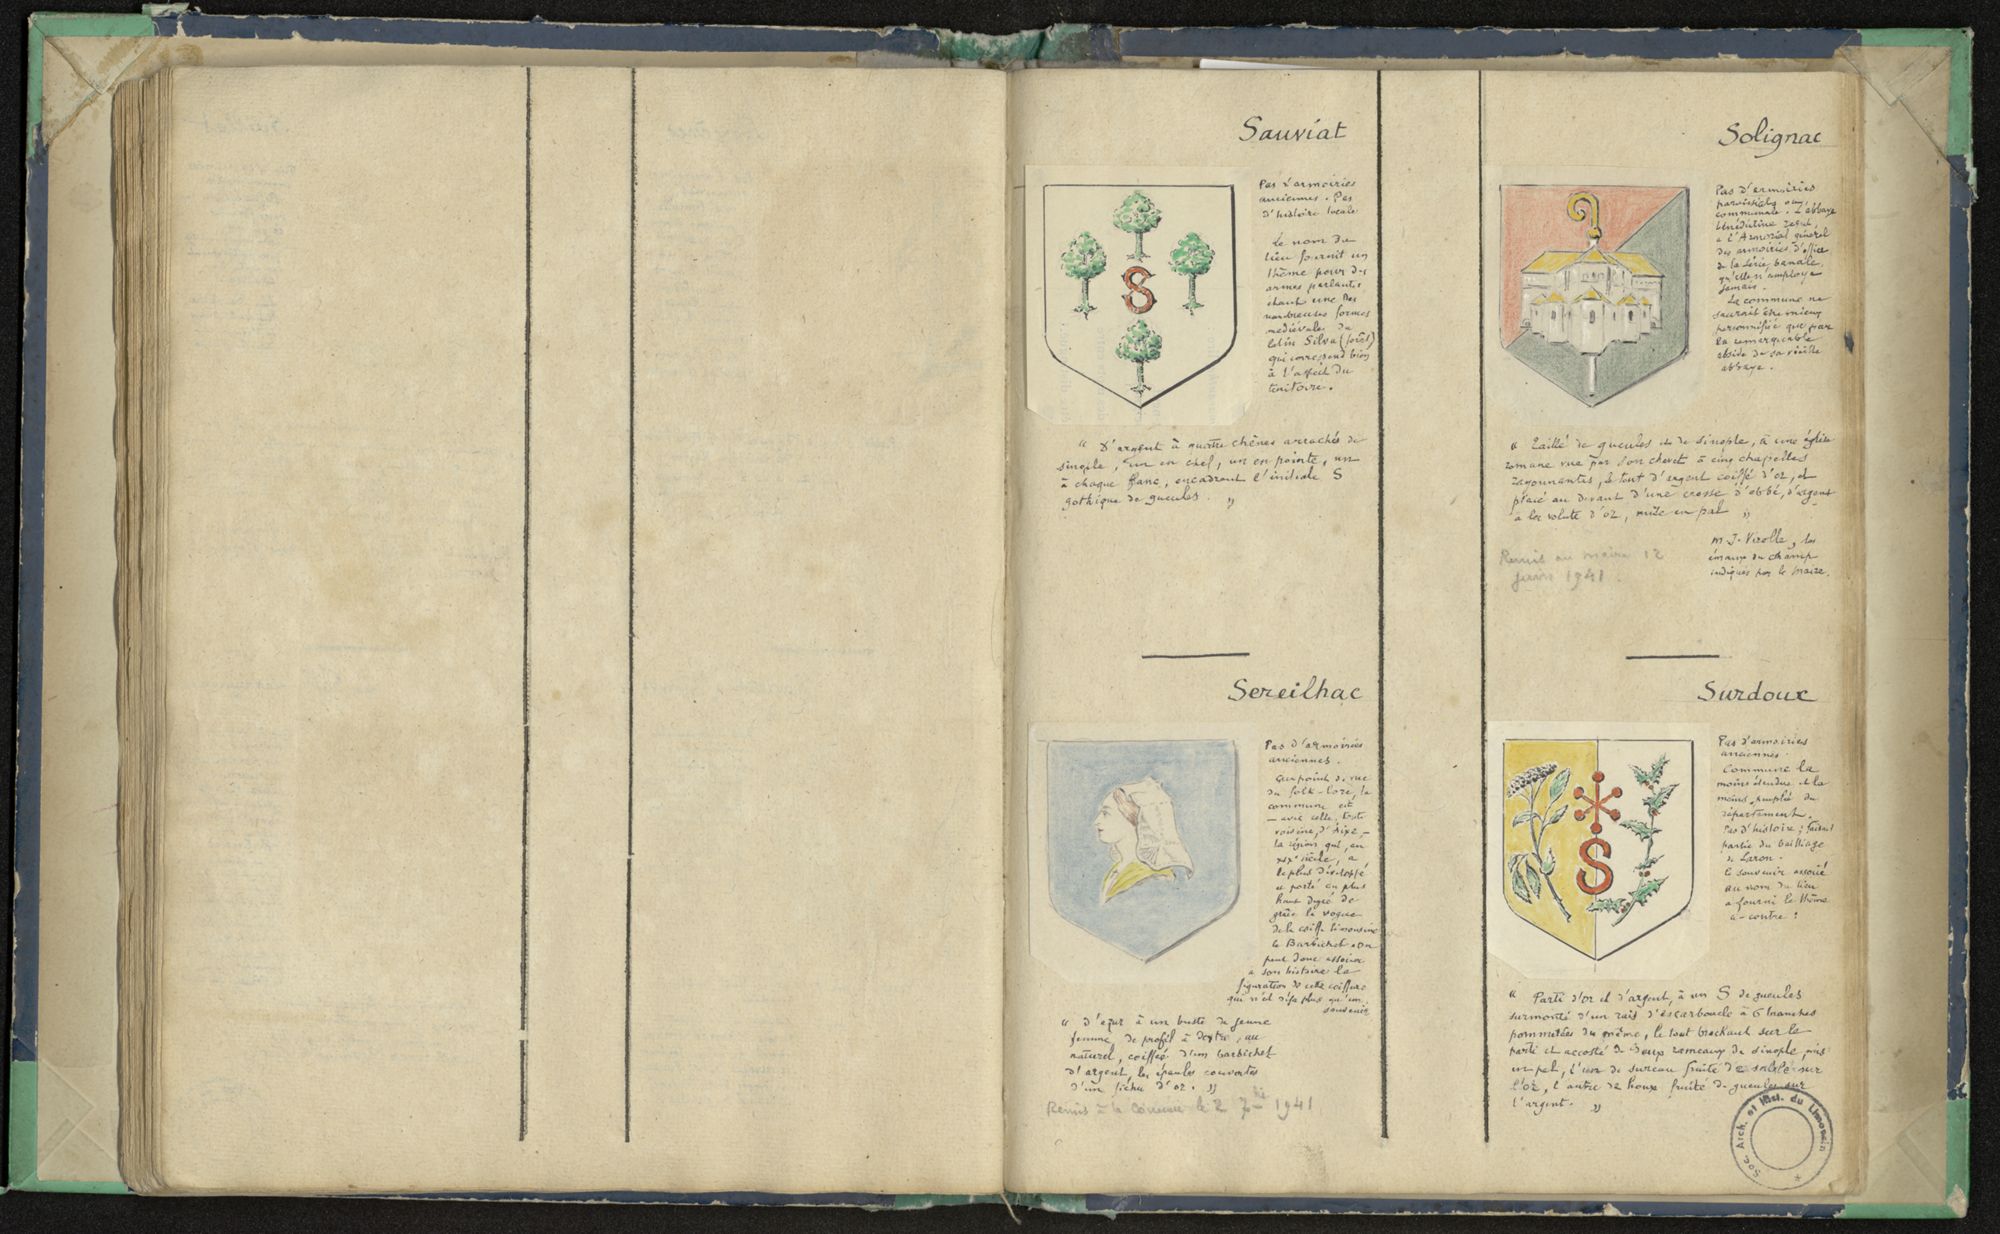 Sauviat
Pas d'armoiries
anciennes. Pas
d'histoire locale
Le nom du
lieu fournit un
thème pour des
armes parlantes
étant une des
nombreuses formes
médiévales du
latin Silva (forêt)
qui correspond bien
à l'aspect du
territoire.
S
" D'argent à quatre chênes arrachés de
sinople, un en chef, un en pointe, un
à chaque flanc, encadrant l'initiale S
gothique de gueules. "
Sereilhac
Pas d'armoiries
anciennes.
Au point de vue
du folk-lore, la
commune est
- avec celle, toute
voisine, d'Aixe -
la région qui, au
XIXe siècle, a
le plus développé
et porté au plus
haut degré de
grâce la vogue
de la coiffe limousine
le Barbichet. On
peut donc associer
à son histoire la
figuration de cette coiffure
qui n'est déjà plus qu'un
souvenir.
" D'azur à un buste de jeune
femme, de profil à dextre, au
naturel, coiffée d'un barbichet
d'argent, les épaules couvertes
d'un fichu d'or. "
Remis à la commune le 2 7bre 1941
Solignac
Pas d'armoiries
paroissiales ou
communale. L'abbaye
bénédictine reçut,
à l'Armorial général
des armoiries d'office
de la série banale,
qu'elle n'employa
jamais.
La commune ne
saurait être mieux
personnifiée que par
la remarquable
abside de sa vieille
abbaye.
" Taillé de gueules et de sinople, à une église
romane vue par son chevet à cinq chapelles
rayonnantes, le tout d'argent coiffé d'or, et
placé au devant d'une crosse d'abbé, d'argent
à la volute d'or, mise en pal "
M. J. Verolle, les
émaux du champ
indiqués par le Maire.
Remis au maire 12
1941.
Surdoux
Pas d'armoiries
anciennes.
Commune la
moins étendue et la
moins peuplée du
département.
Pas d'histoire ; faisait
partie du bailliage
de Laron.
Le souvenir associé
au nom du lieu
a fourni le thème
ci-contre :
S
" Parti d'or et d'argent, à un S de gueules
surmonté d'un rais d'escarboucle à 6 branches
pommetées du même, le tout brochant sur le
parti et accosté de deux rameaux de sinople, mis
en pal, l'un de sureau fruité de sable sur
l'or, l'autre de houx fruité de gueules sur
l'argent. "
Soc. Arch. et Hist. du Limousin